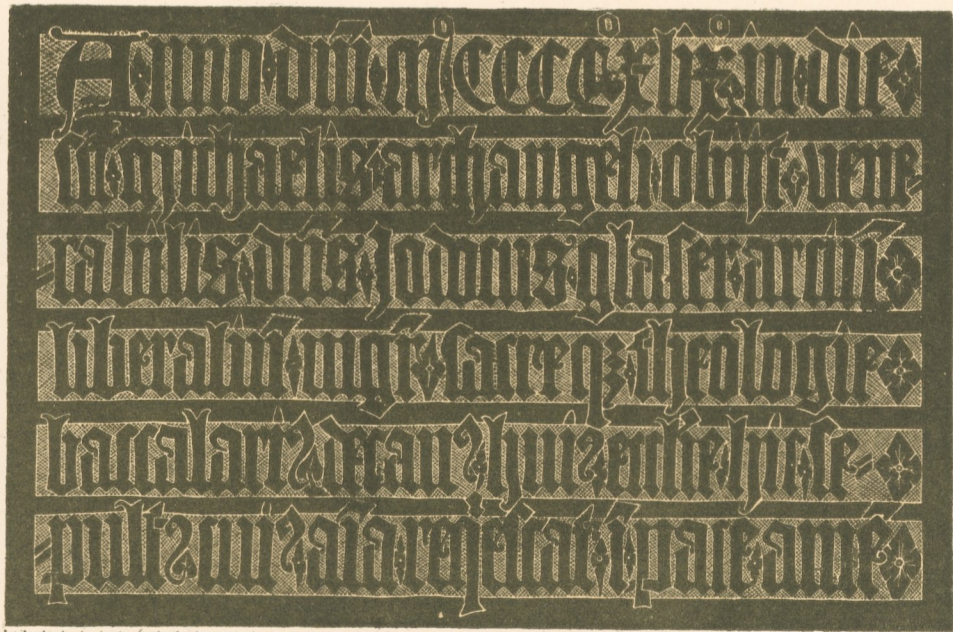 Anno · dñi · M CCCC xlix · in · die ·
sci · michaelis · archangeli · obiit · vene
rabilis · dñs · Jodocus · glaser · arciũ ·
liberaliũ · mgr̄ · sacreqꝫ · theologie ·
baccalariꝰ · decanꝰ · huiꝰ · ecclie · hic · se
pultꝰ · cuiꝰ · aĩa · req̇escat · ĩ · pace · amẽ ·